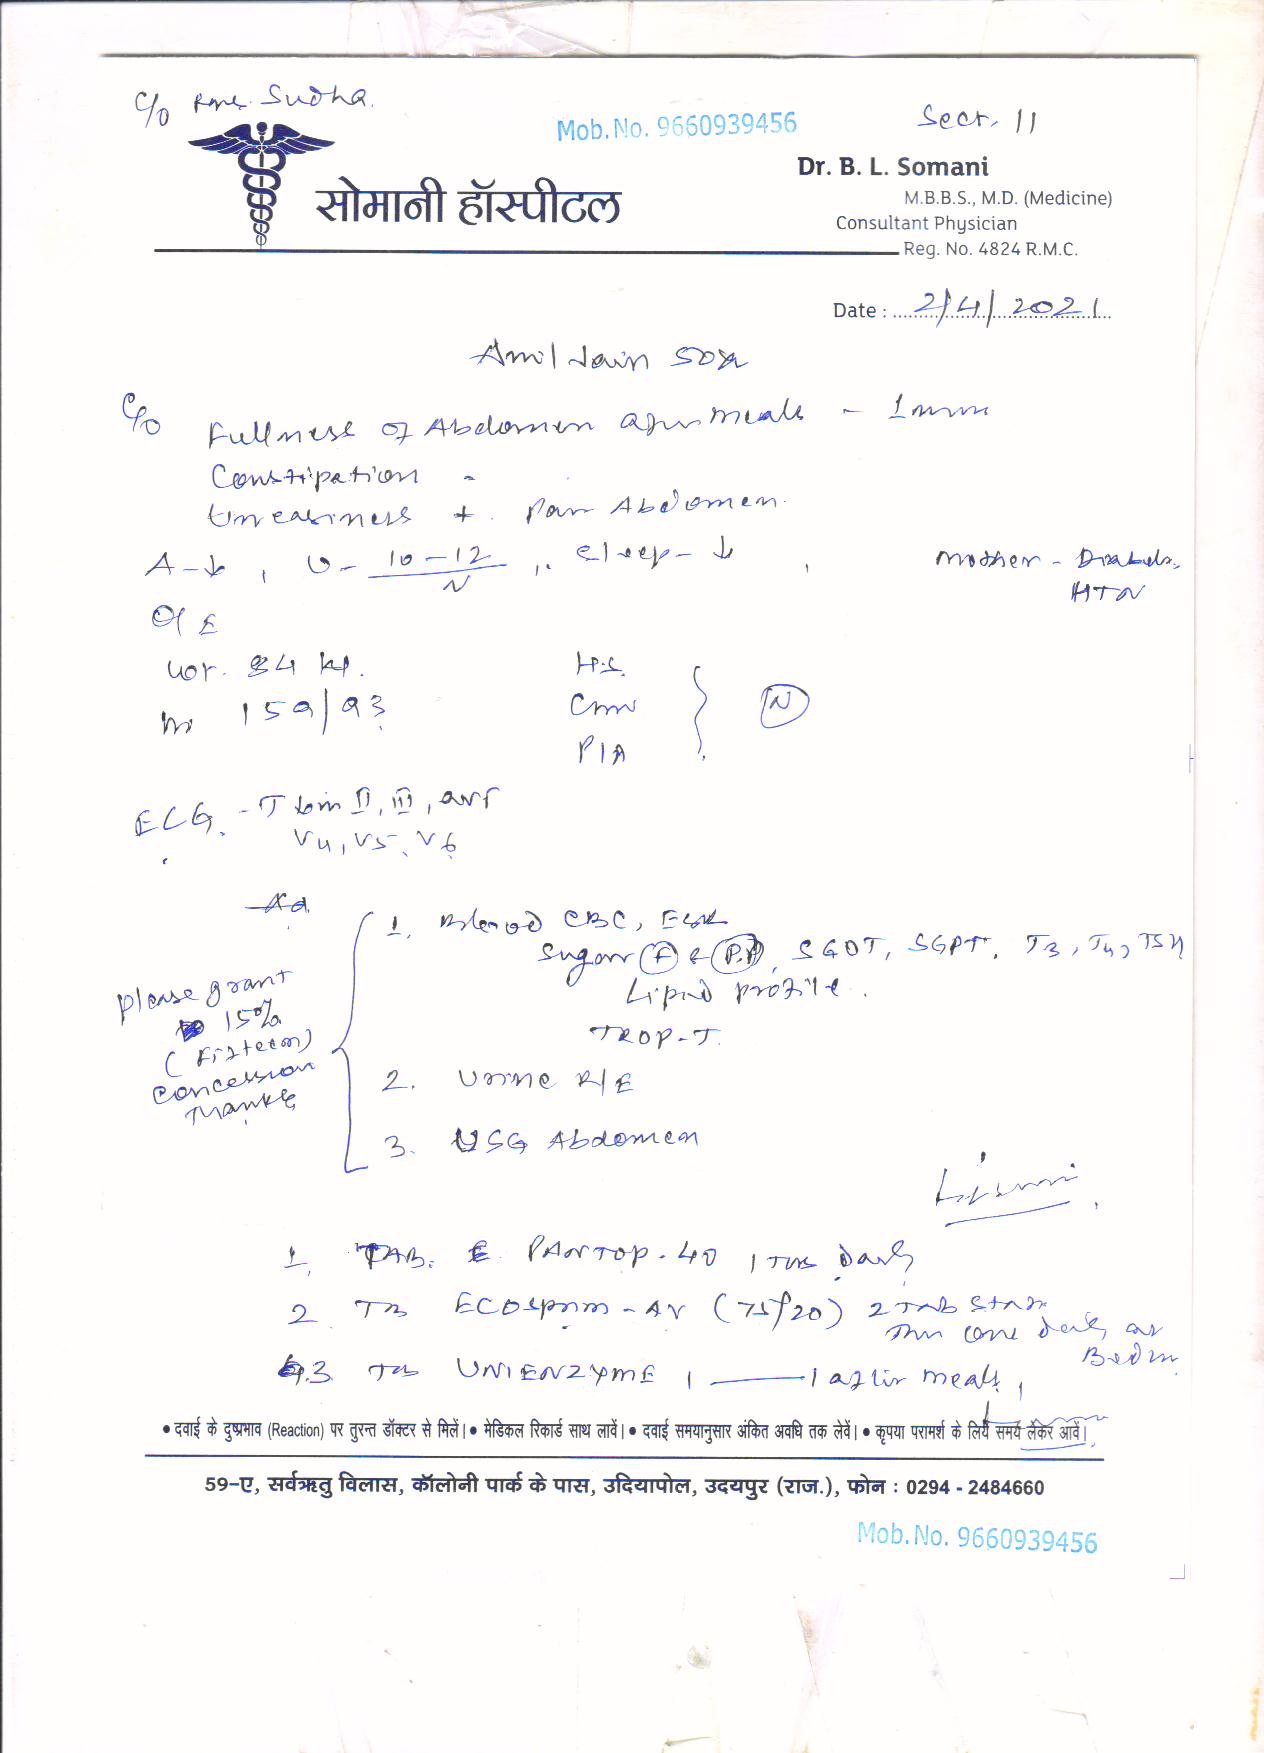 C/o Sudha.
Mob.No. 9660939456
Sect. 11
सोमानी हॉस्पीटल
Dr. B. L. Somani
M.B.B.S., M.D. (Medicine)
Consultant Physician
Reg. No. 4824 R.M.C.
Date : 2/4/2021
Jain
C/o
Fullness of Abdomen after meals - 1
Constipation -
Uneasiness + Pain Abdomen
A-↓, U- 10-12/N, sleep-↓,
Mother - Diabetes,
HTN
O/E
wt. 84 kg.
159/93
H.S.
P/A
N
ECG. - T II, III, avF
V4, V5, V6
Ad.
1. Blood CBC, ESR
Sugar F & P.P, SGOT, SGPT, T3, T4, TSH
Lipid profile.
TROP-T.
2. Urine R/E
3. USG Abdomen
please grant
15%
(Fifteen)
concession
Thanks
1. TAB. PANTOP-40 1 Tab daily
2 Tab ECOsprin-AV (75/20) 2 TAB Stat
Then one daily at
Bedtime
3. Tab UNIENZYME 1 — 1 after meals
• दवाई के दुष्प्रभाव (Reaction) पर तुरन्त डॉक्टर से मिलें। • मेडिकल रिकार्ड साथ लावें। • दवाई समयानुसार अंकित अवधि तक लेवें। • कृपया परामर्श के लिये समय लेकर आवें।
59-ए, सर्वऋतु विलास, कॉलोनी पार्क के पास, उदियापोल, उदयपुर (राज.), फोन : 0294 - 2484660
Mob.No. 9660939456